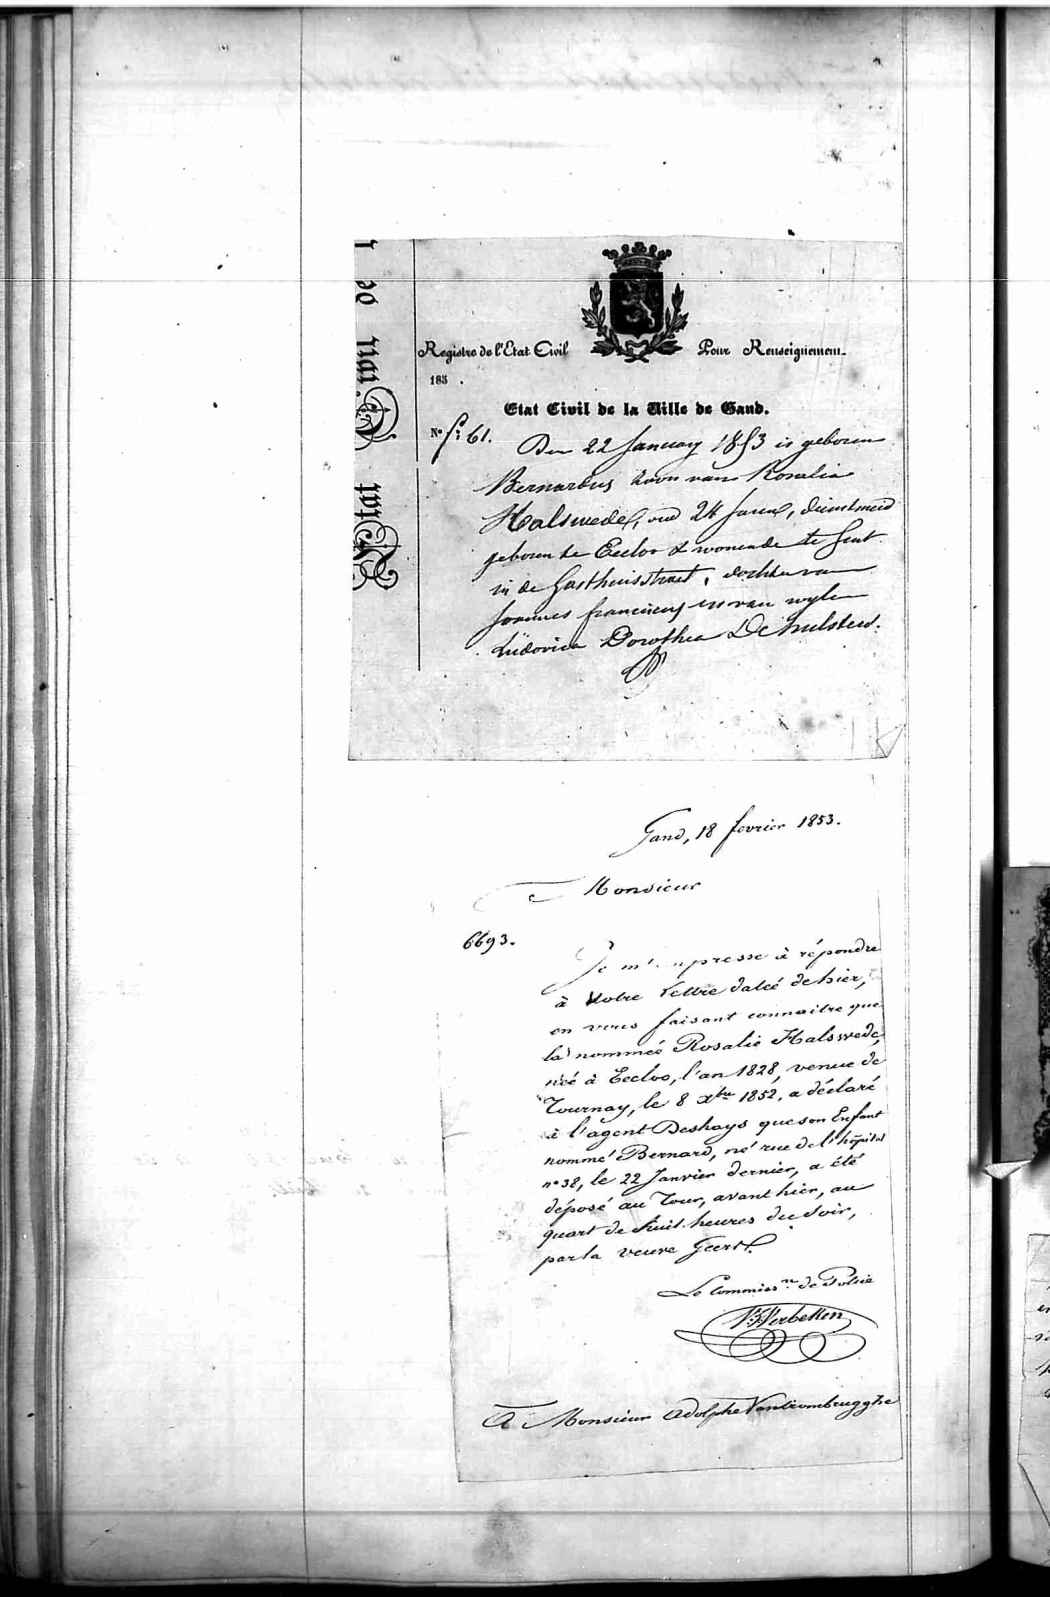 Etat Civil de
Registre de l'Etat Civil Pour Renseignement.
185 .
Etat Civil de la Ville de Gand.
N° 61. Den 22 January 1853 is geboren
Bernardus zoon van Rosalia
Halswede, oud 24 jaren, dienstmeid
geboren te Eecloo & wonende te Gent
in de Gasthuisstraet, dochter van
Joannes franciscus en van wylen
Ludovica Dorothea De hulsters.
Gand, 18 fevrier 1853.
Monsieur
6693.
Je m'empresse à répondre
à votre lettre datée de hier,
en vous faisant connaitre que
la nommée Rosalie Halswede,
née à Eecloo, l'an 1828, venue de
Tournay, le 8 Xbre 1852, a déclaré
à l'agent Deshays que son Enfant
nommé Bernard, né rue de l'hôpital
n° 38, le 22 Janvier dernier, a été
déposé au Tour, avant hier, au
quart de huit heures du soir,
par la veuve Geers.
Le Commissre de Police
Verbetten
A Monsieur Adolphe Vanlerombrugghe